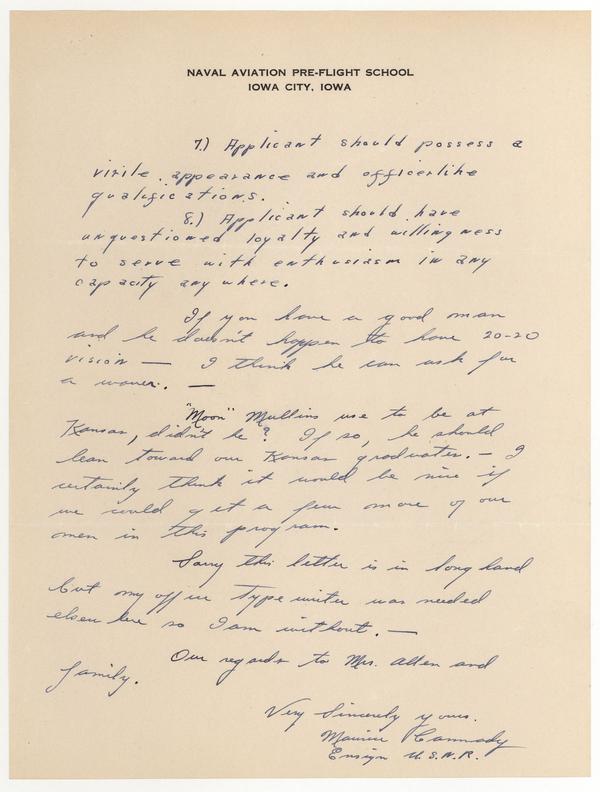 NAVAL AVIATION PRE-FLIGHT SCHOOL
IOWA CITY, IOWA
7.) Applicant should possess a
virile appearance and officerlike
qualifications.
8.) Applicant should have
unquestioned loyalty and willingness
to serve with enthusiasm in any
capacity any where.
If you have a good man
and he doesn't happen to have 20-20
vision — I think he can ask for
a waver. —
"Moon" Mullins use to be at
Kansas, didn't he? If so, he should
lean toward our Kansas graduates. — I
certainly think it would be nice if
we could get a few more of our
men in this program.
Sorry this letter is in long hand
but my office typewriter was needed
elsewhere so I am without. —
Our regards to Mrs. Allen and
family.
Very Sincerely yours.
Maurice Cannady
Ensign U.S.N.R.